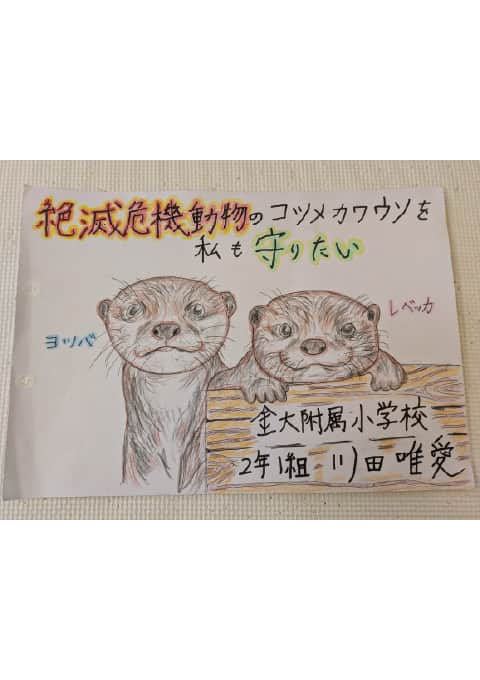 絶滅危機動物のコツメカワウソを
私も守りたい
ヨツバ
レベッカ
金大附属小学校
2年1組 川田唯愛